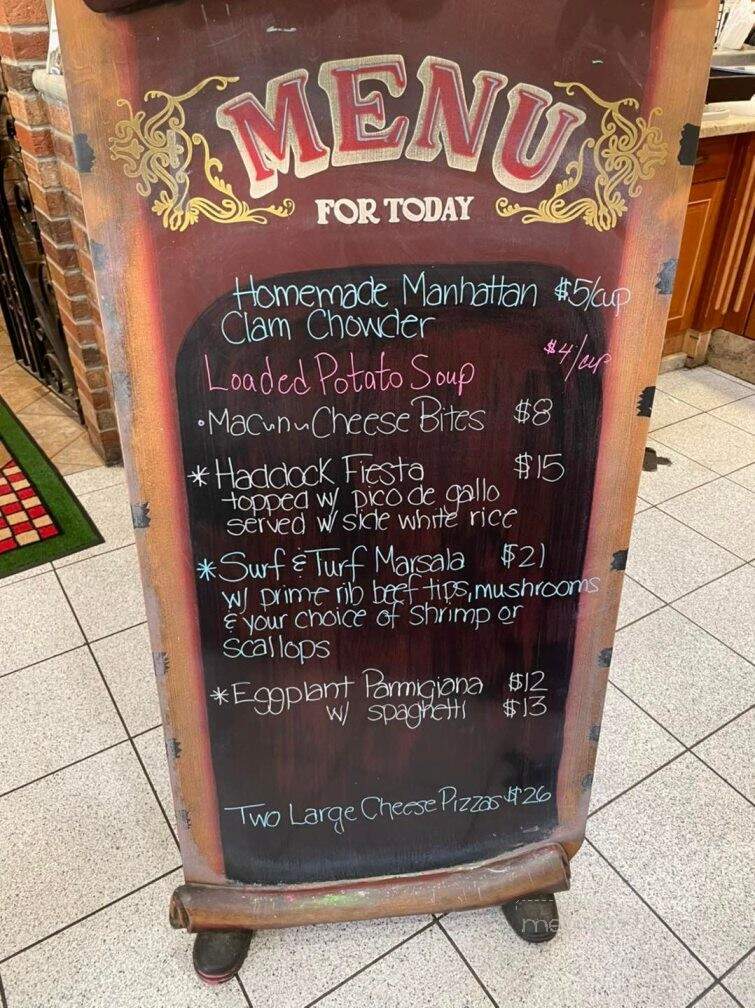 MENU
FOR TODAY
Homemade Manhattan $5/cup
Clam Chowder
Loaded Potato Soup $4/cup
• Mac n Cheese Bites $8
* Haddock Fiesta $15
topped w/ pico de gallo
served w/ side white rice
* Surf & Turf Marsala $21
w/ prime rib beef tips, mushrooms
& your choice of Shrimp or
scallops
* Eggplant Parmigiana $12
w/ spaghetti $13
Two Large Cheese Pizzas $26